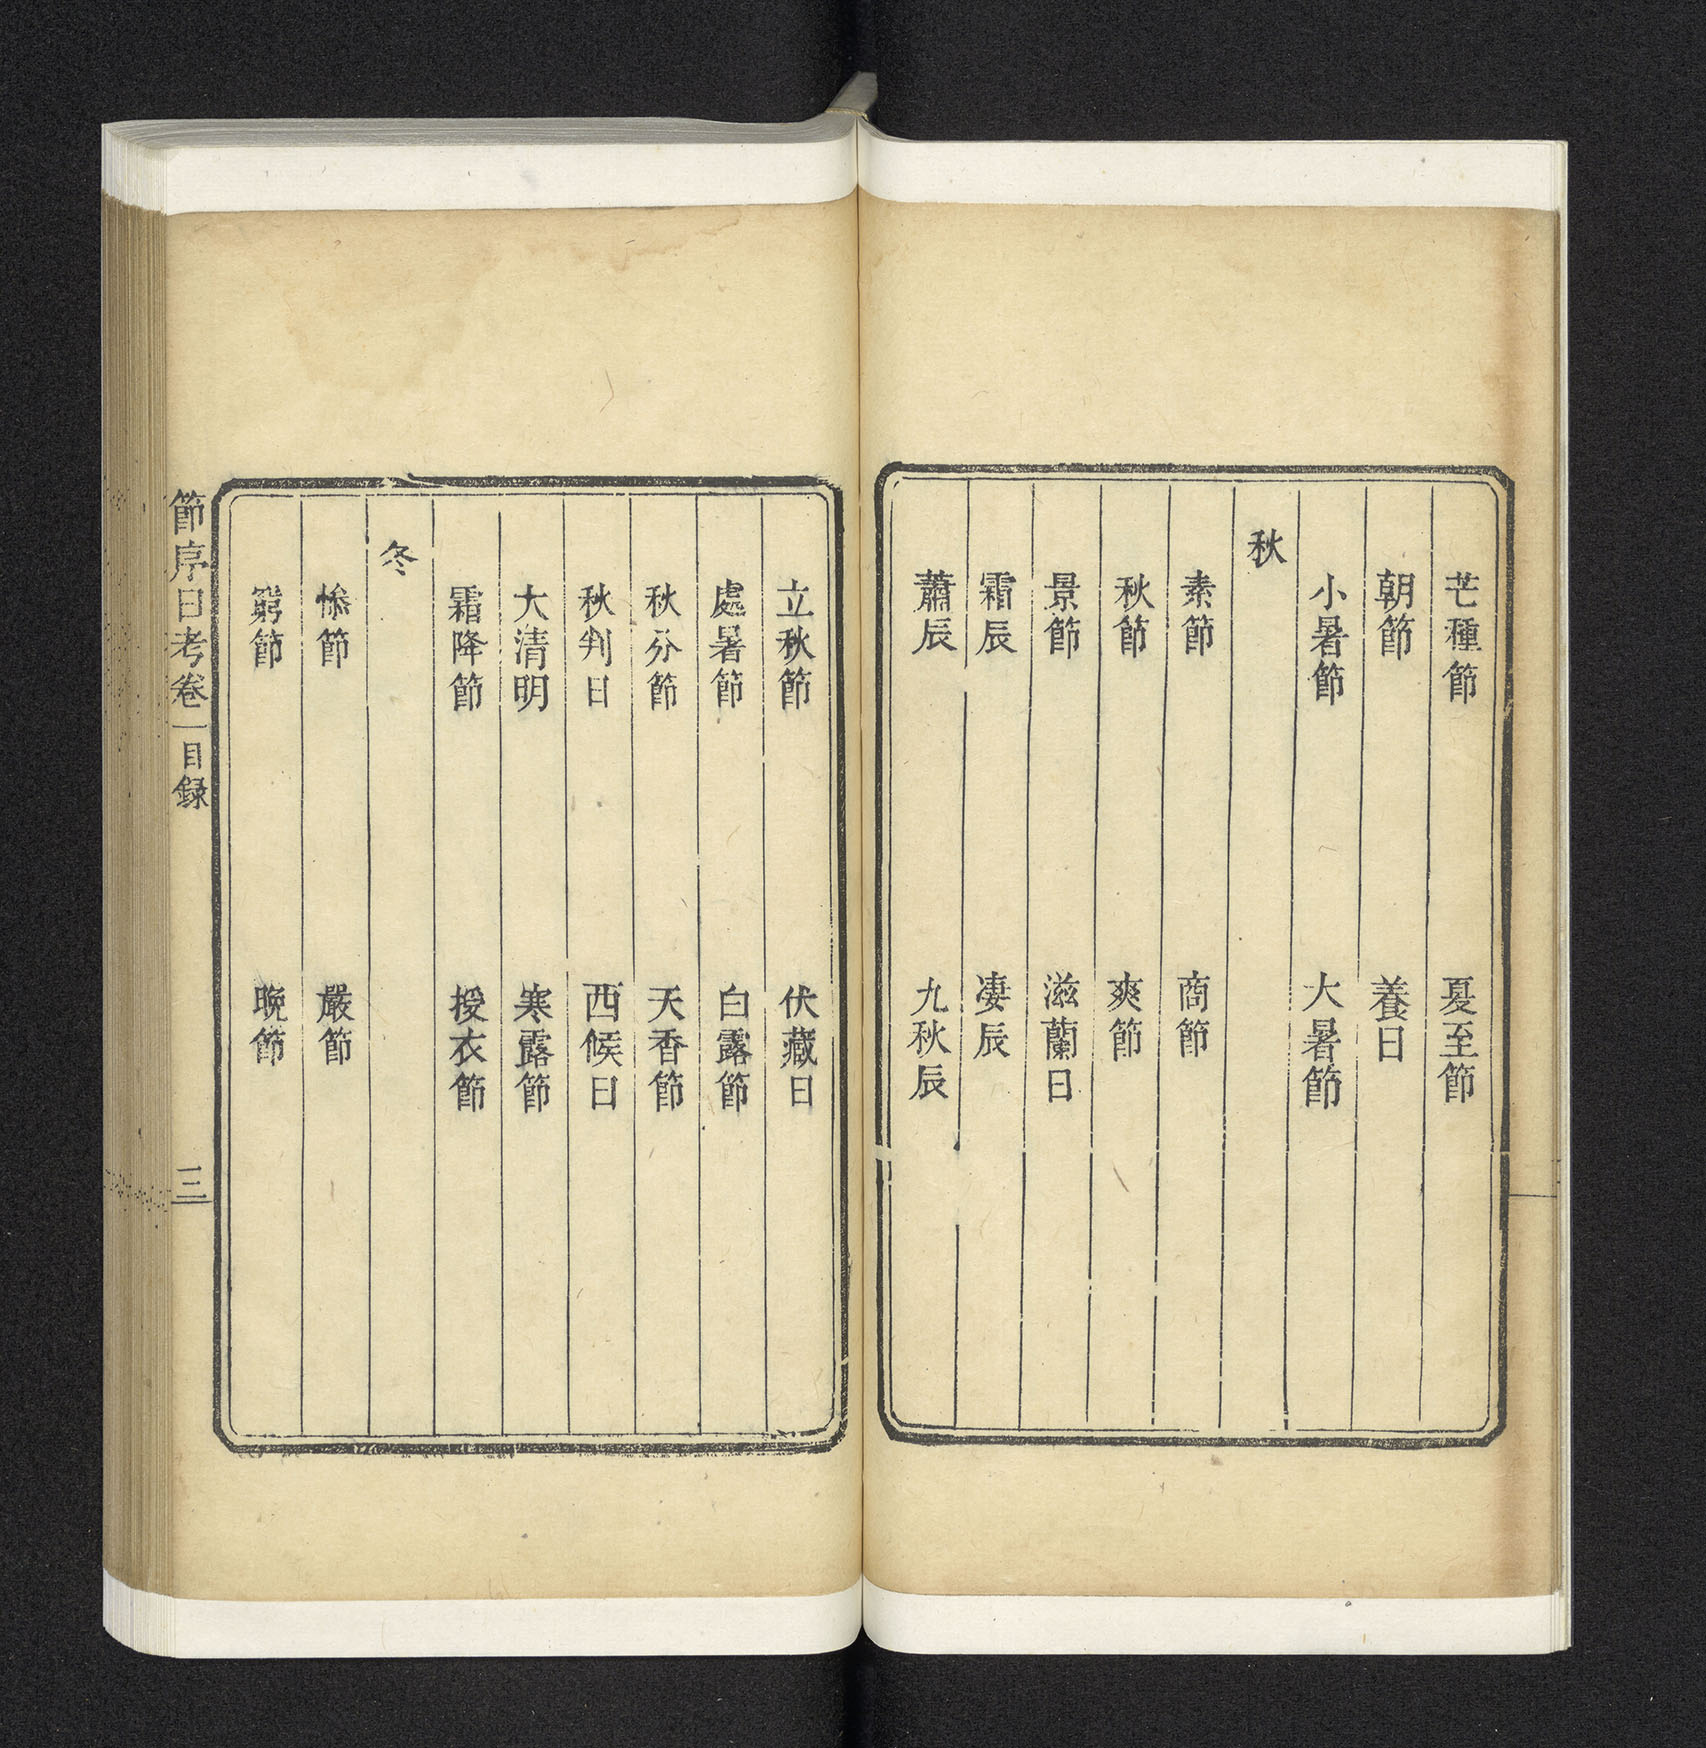 芒種節　夏至節
朝節　養日
小暑節　大暑節
秋
素節　商節
秋節　爽節
景節　滋蘭日
霜辰　凄辰
蕭辰　九秋辰
立秋節　伏藏日
處暑節　白露節
秋分節　天香節
秋判日　西候日
大清明　寒露節
霜降節　授衣節
冬
慘節　嚴節
窮節　晚節
節序日考卷一目録　三